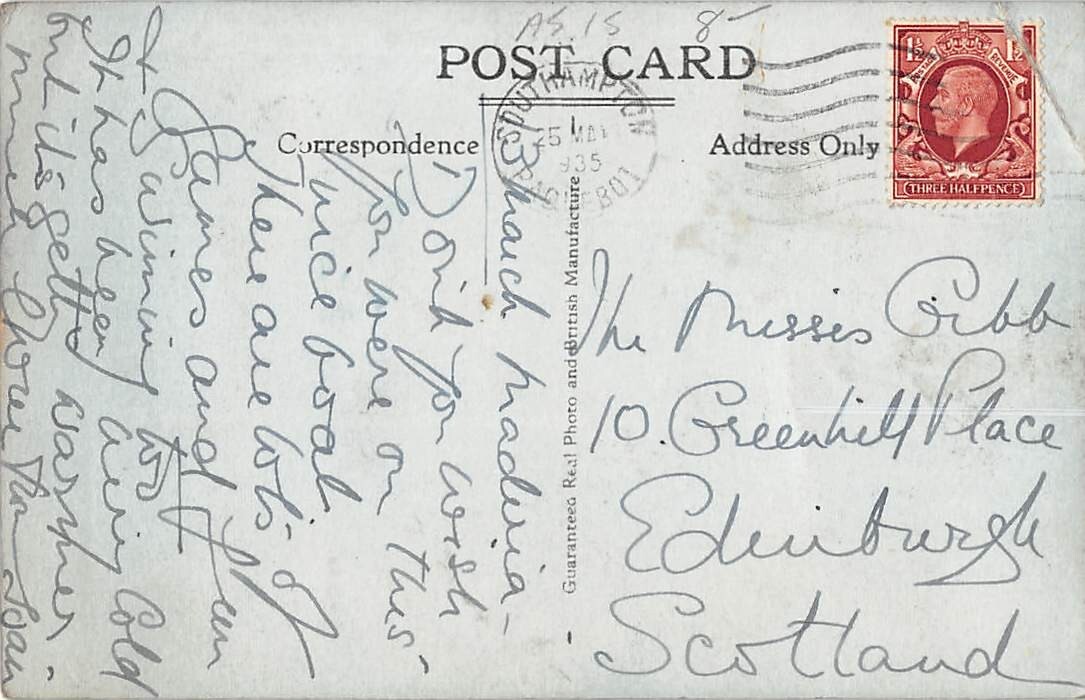 A5.15 8-
POST CARD
Correspondence
Address Only
1½ 1½
POSTAGE REVENUE
THREE HALFPENCE
SOUTHAMPTON
25 MAY
1935
PACKET BOAT
Guaranteed Real Photo and British Manufacture
The Misses Gibb
10. Greenhill Place
Edinburgh
Scotland
Madeira -
Don't you wish
you were on this
nice boat
There are lots of
Games and fun
& Swimming too
It has been very Cold
but it's getting warmer -
much love